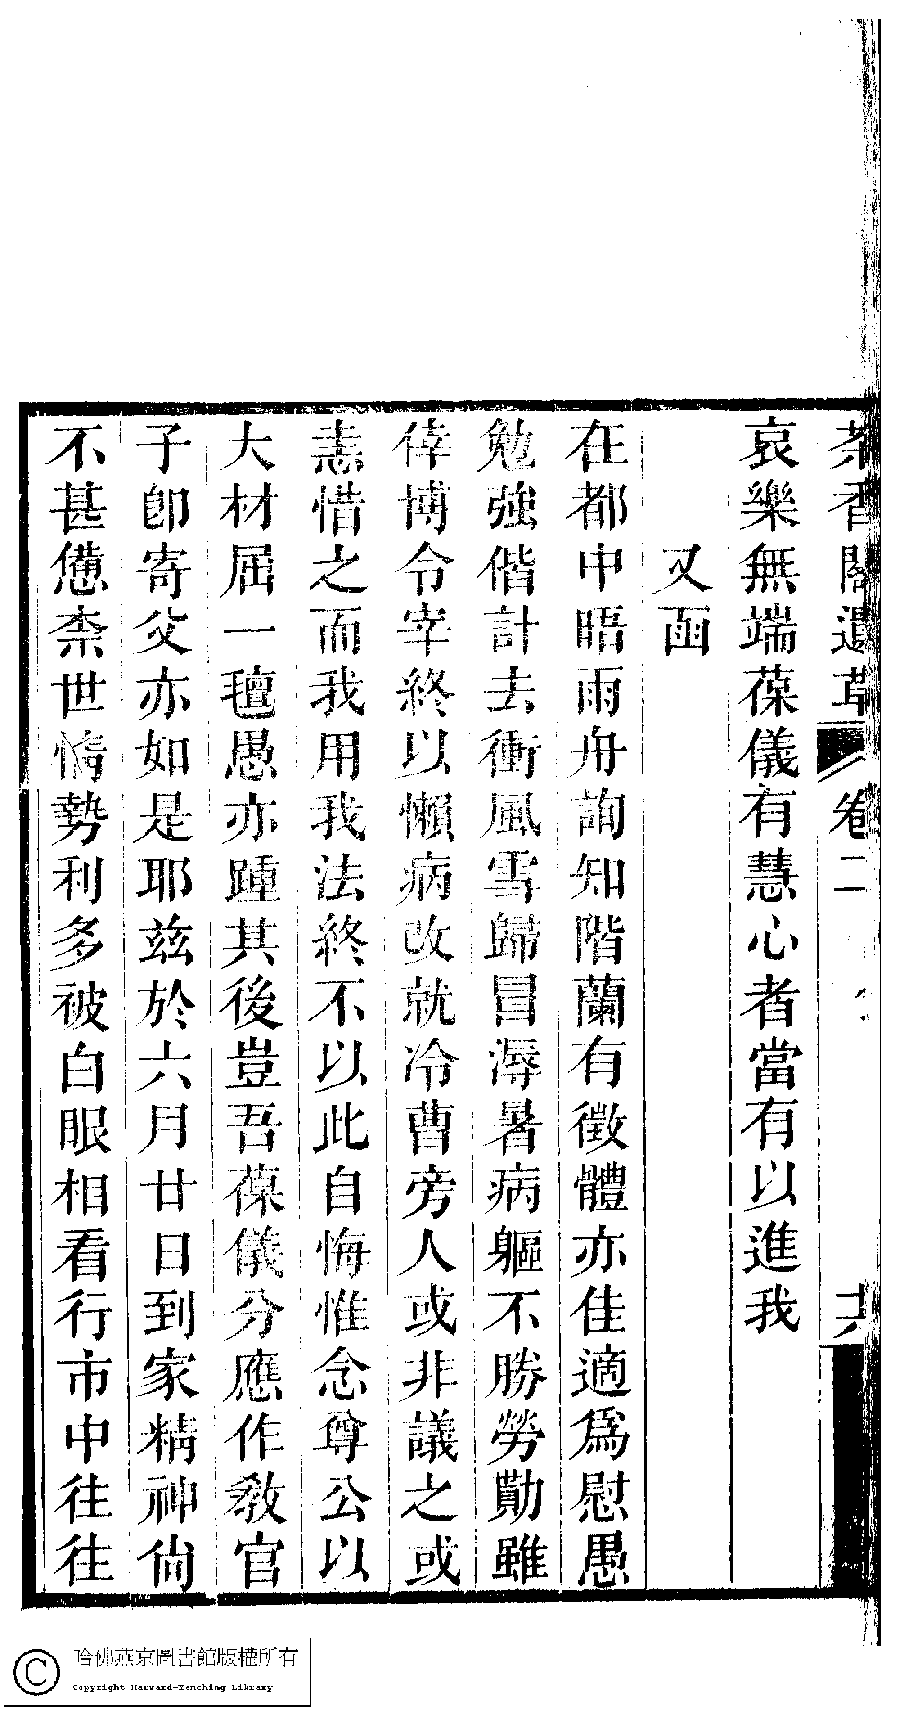 茶香閣遺草 卷二 六
哀樂無端葆儀有慧心者當有以進我
又函
在都中晤雨舟詢知階蘭有徵體亦佳適爲慰愚
勉強偕計去衝風雪歸冒溽暑病軀不勝勞勩雖
倖博令宰終以懶病改就冷曹旁人或非議之或
恚惜之而我用我法終不以此自悔惟念尊公以
大材屈一氊愚亦踵其後豈吾葆儀分應作敎官
子卽寄父亦如是耶兹於六月廿日到家精神尙
不甚憊柰世情勢利多被白眼相看行市中往往
哈佛燕京圖書館版權所有
Copyright Harvard-Yenching Library